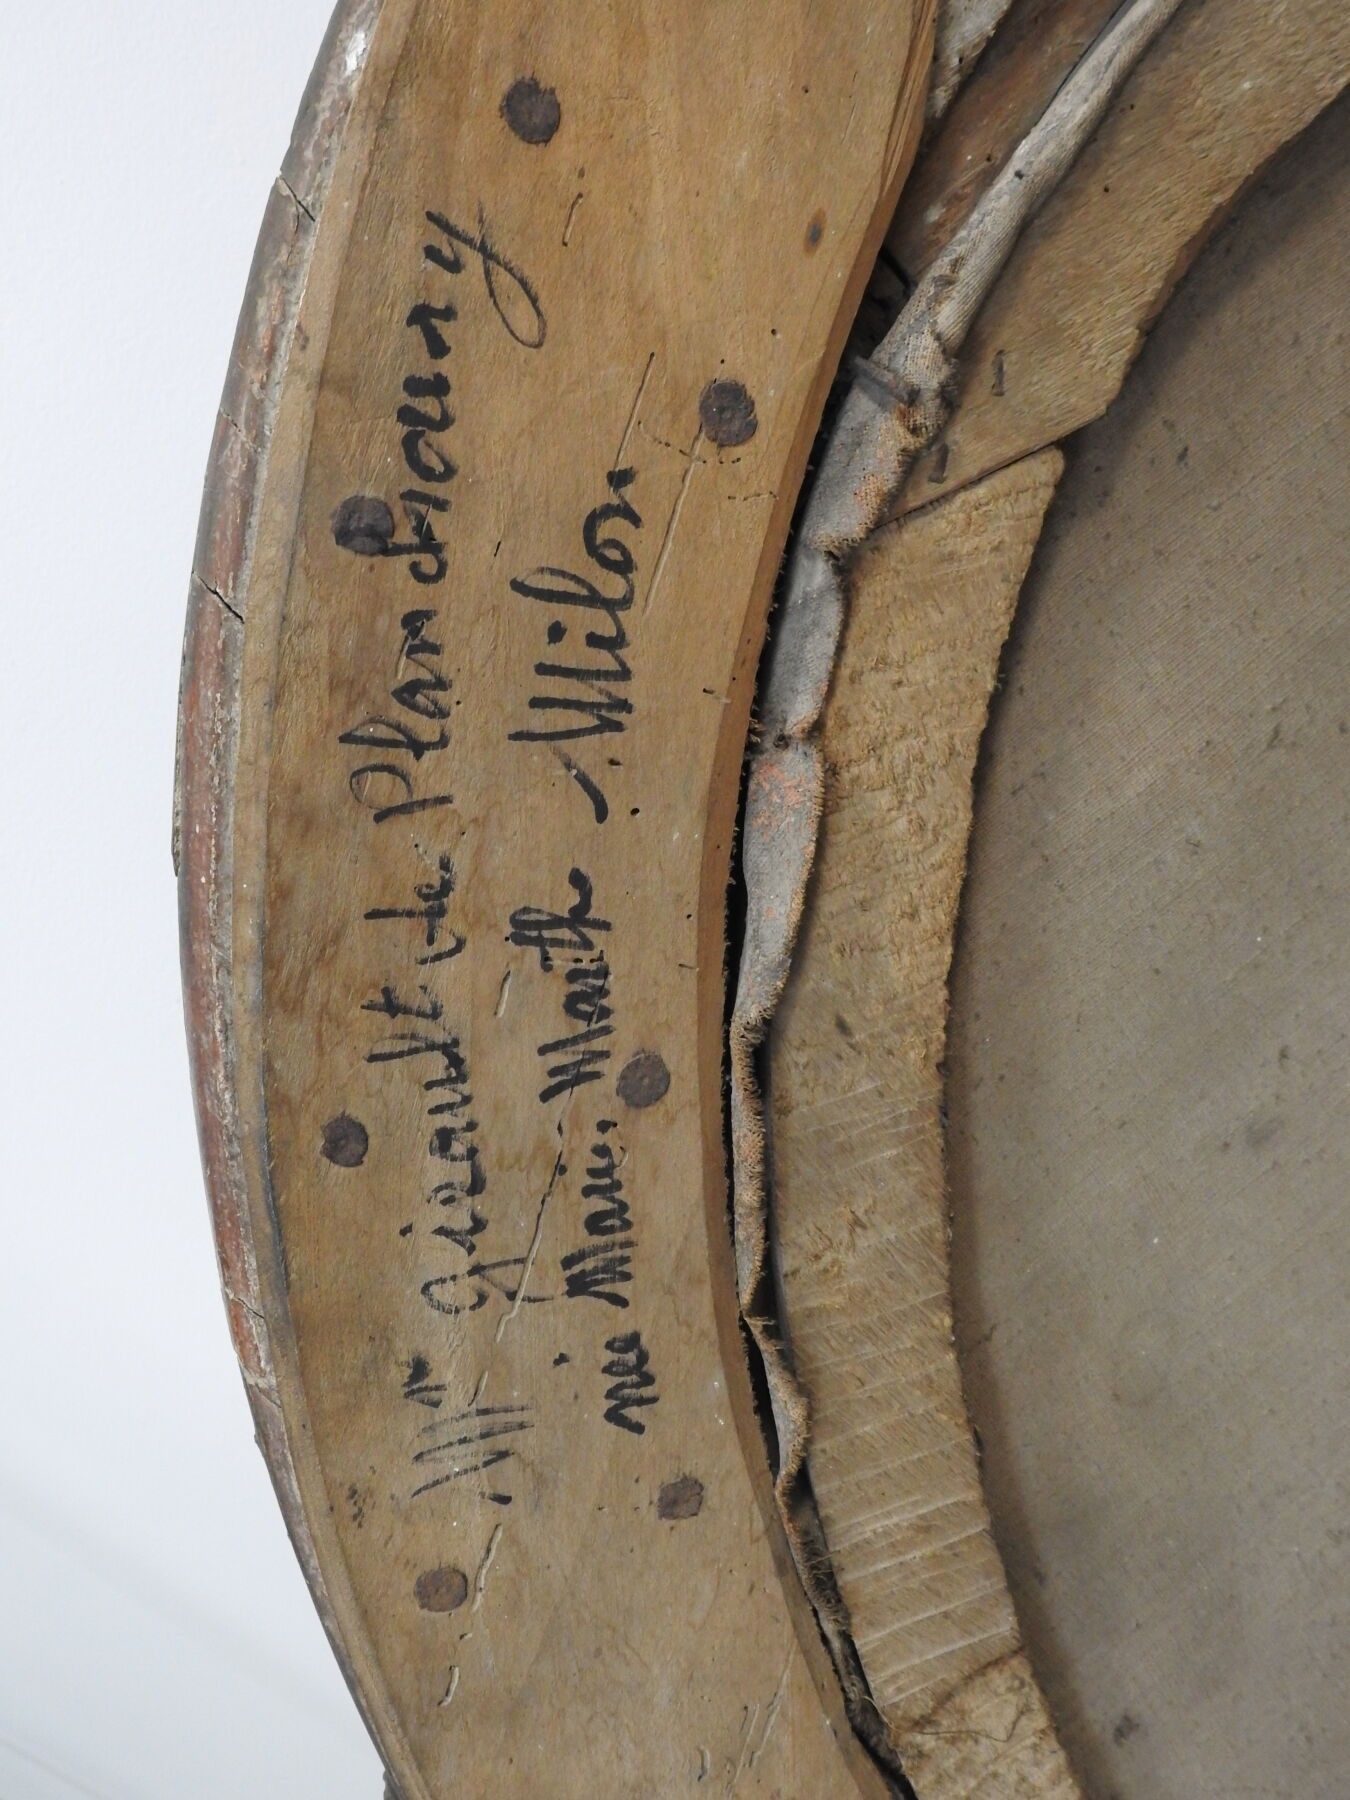 Mr girault de Planchoury
née Marie. Marthe Milon